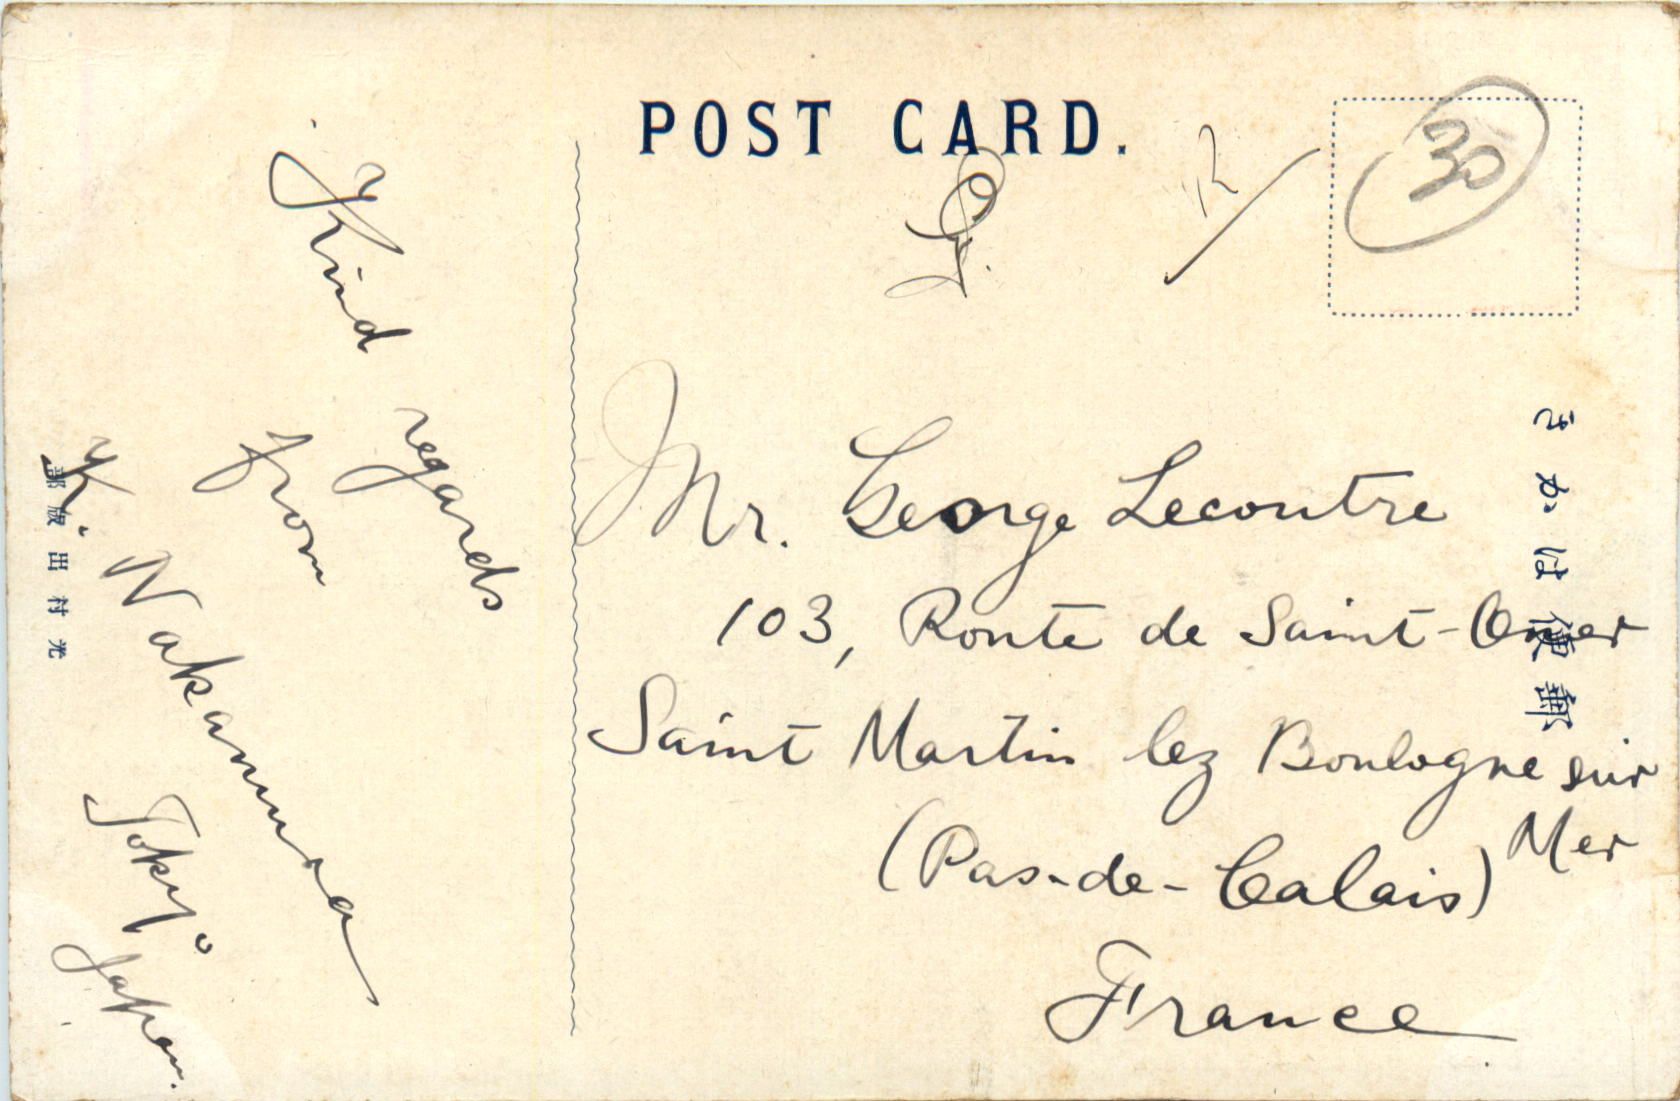 POST CARD.
30
Kind regards
from
K. Nakamura
Tokyo
Japan.
Mr. George Lecontre
103, Route de Saint-Omer
Saint Martin lez Boulogne sur
Mer
(Pas-de-Calais)
France
郵便はかき
光村出版部